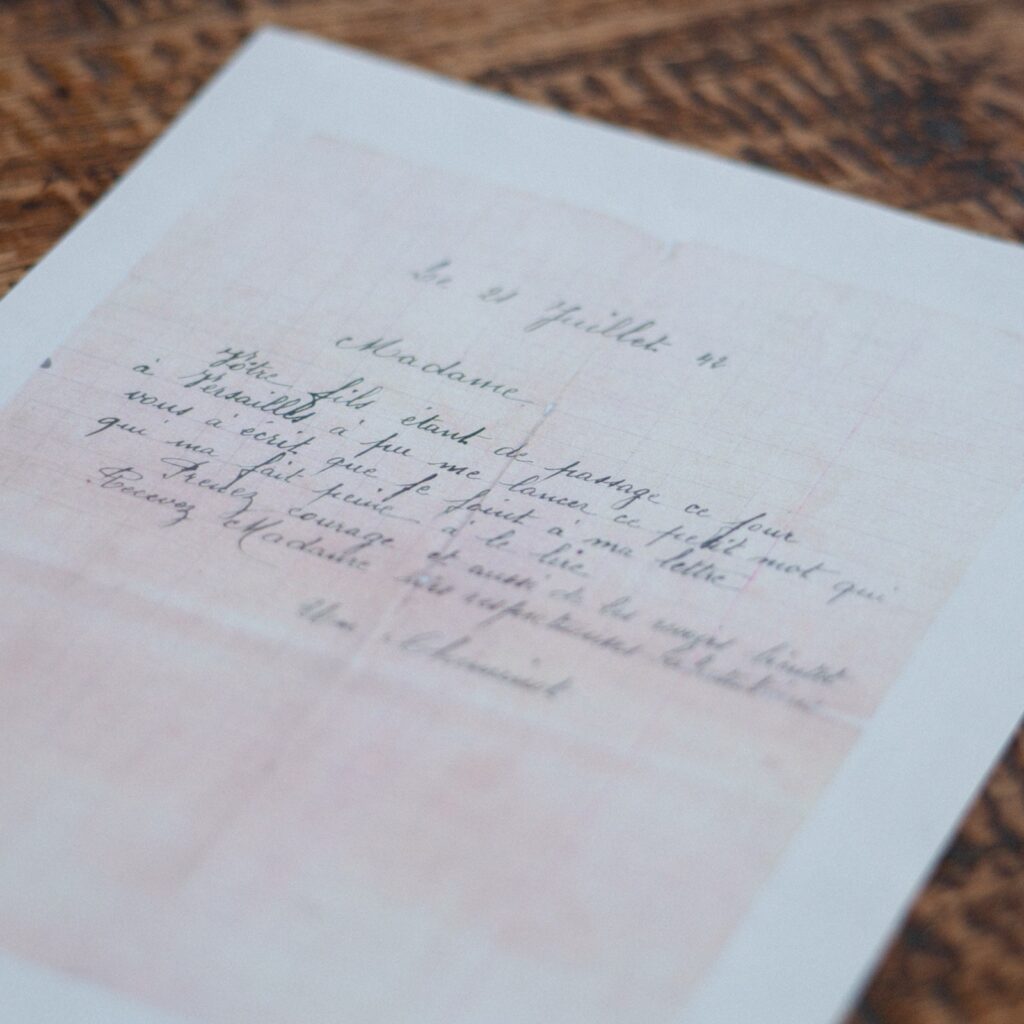 Le 21 Juillet 42
Madame
Vôtre fils étant de passage ce jour
à Versailles à pu me lancer ce petit mot qui
vous à écrit que je joint à ma lettre
qui ma fait peine à le lire
Prenez courage et aussi de
Recevez Madame mes respectueuses salutations
Un Cheminot